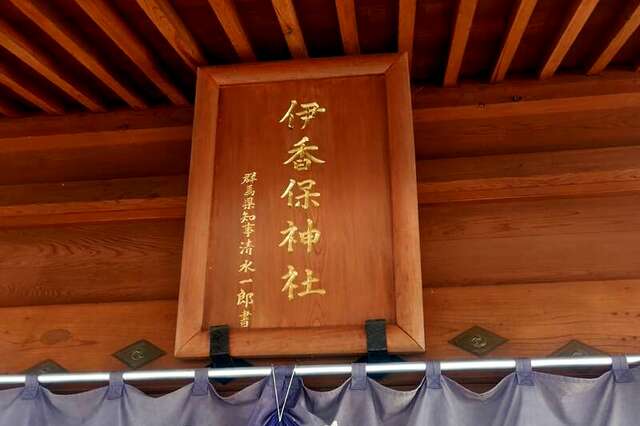 伊香保神社
群馬県知事清水一郎書